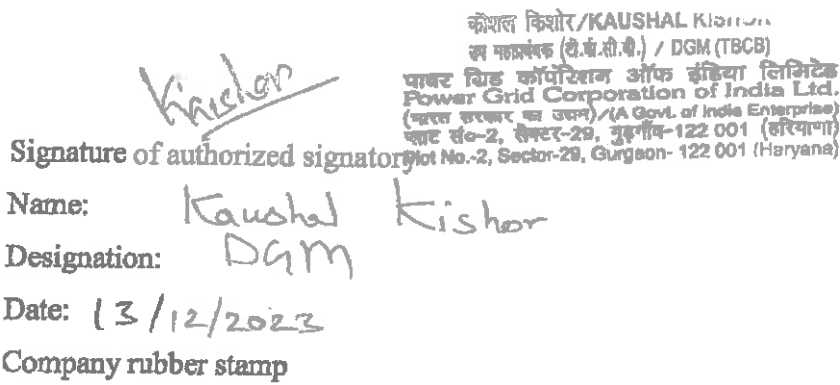 कौशल किशोर/KAUSHAL KISHOR
उप महाप्रबंधक (टी.बी.सी.बी.) / DGM (TBCB)
पावर ग्रिड कॉर्पोरेशन ऑफ इंडिया लिमिटेड
Power Grid Corporation of India Ltd.
(भारत सरकार का उद्यम)/(A Govt. of India Enterprise)
प्लाट सं०-2, सैक्टर-29, गुड़गाँव-122 001 (हरियाणा)
Plot No.-2, Sector-29, Gurgaon- 122 001 (Haryana)
Kaushal
Signature of authorized signatory
Name: Kaushal Kishor
Designation: DGM
Date: 13/12/2023
Company rubber stamp